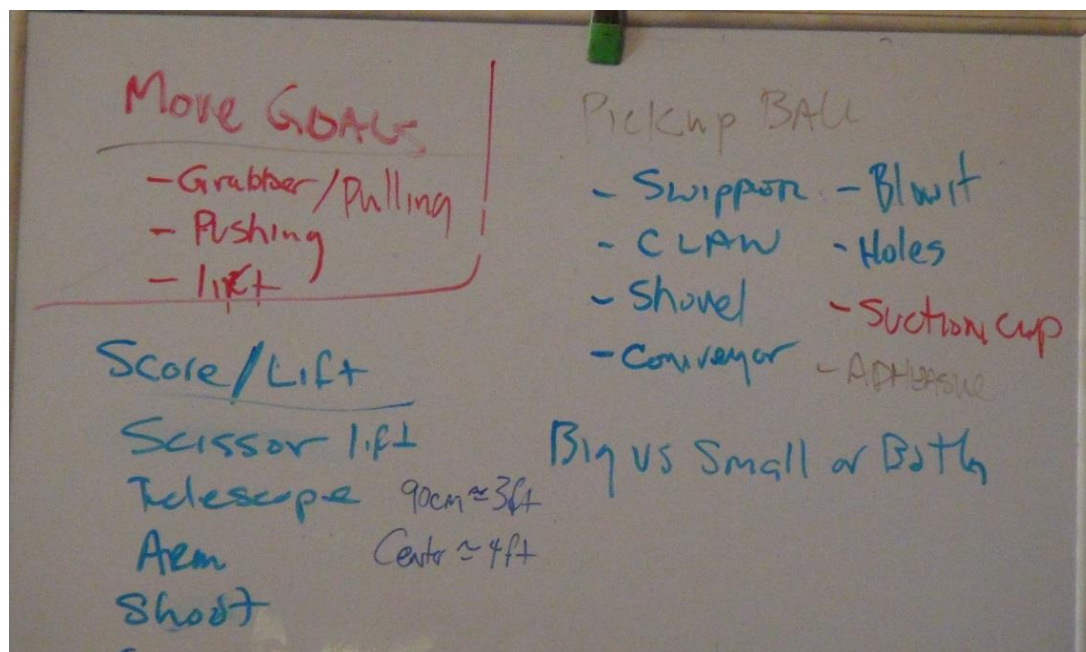 Move GOALS
- Grabber/Pulling
- Pushing
- lift
Score/Lift
Scissor lift
Telescope 90cm ≃ 3ft
Arm Center ≃ 4ft
Shoot
Pickup BALL
- Swipper - Blowit
- CLAW - Holes
- Shovel - Suction cup
- Conveyor - ADHEASIVE
Big vs Small or Both